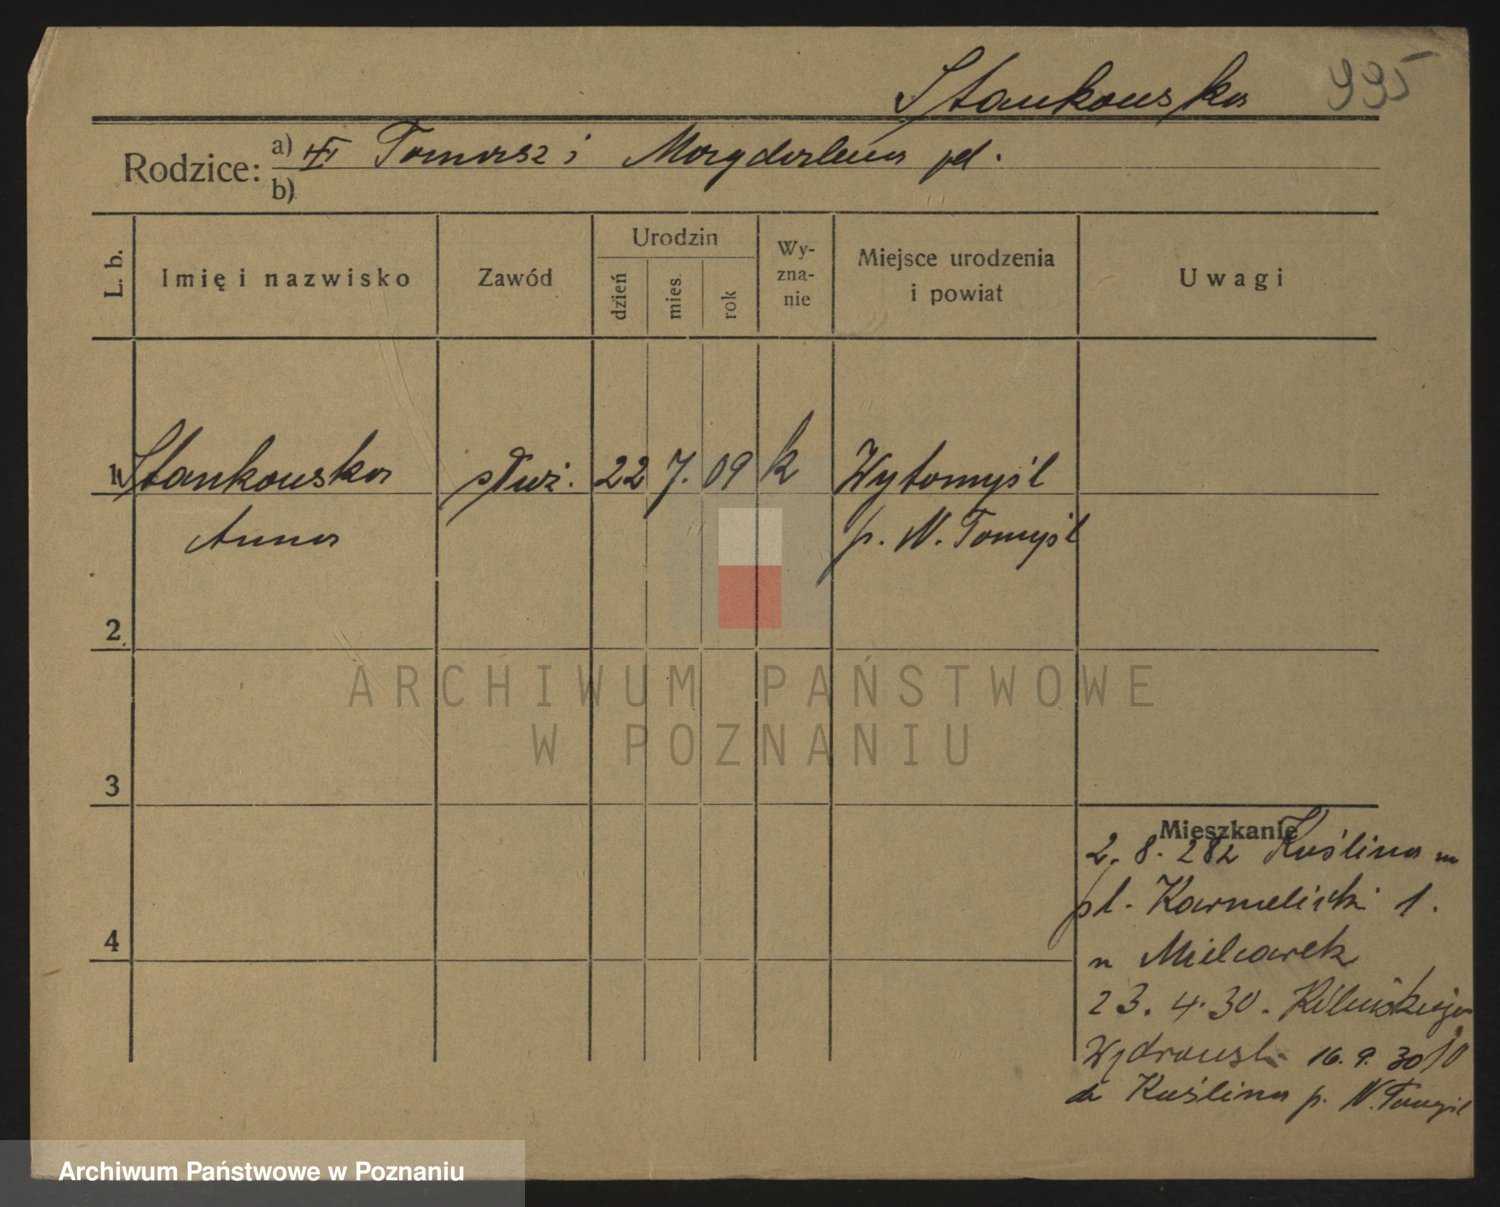 Stankowska 995
Rodzice: a) Tomasz i Magdalena pl.
b)
L. b. Imię i nazwisko Zawód Urodzin dzień mies. rok Wy-zna-nie Miejsce urodzenia i powiat Uwagi
1 Stankowska służ. 22 7. 09 k Wytomyśl
Anna p. N. Tomyśl
2
3
4
Mieszkanie
2. 8. 282 Kuślina
pl. Karmelicki 1.
u Mielcarek
23. 4. 30. Kilińskiego
10
Wydrowsk. 16. 9. 30
do Kuślina p. N. Tomyśl
ARCHIWUM PAŃSTWOWE
W POZNANIU
Archiwum Państwowe w Poznaniu